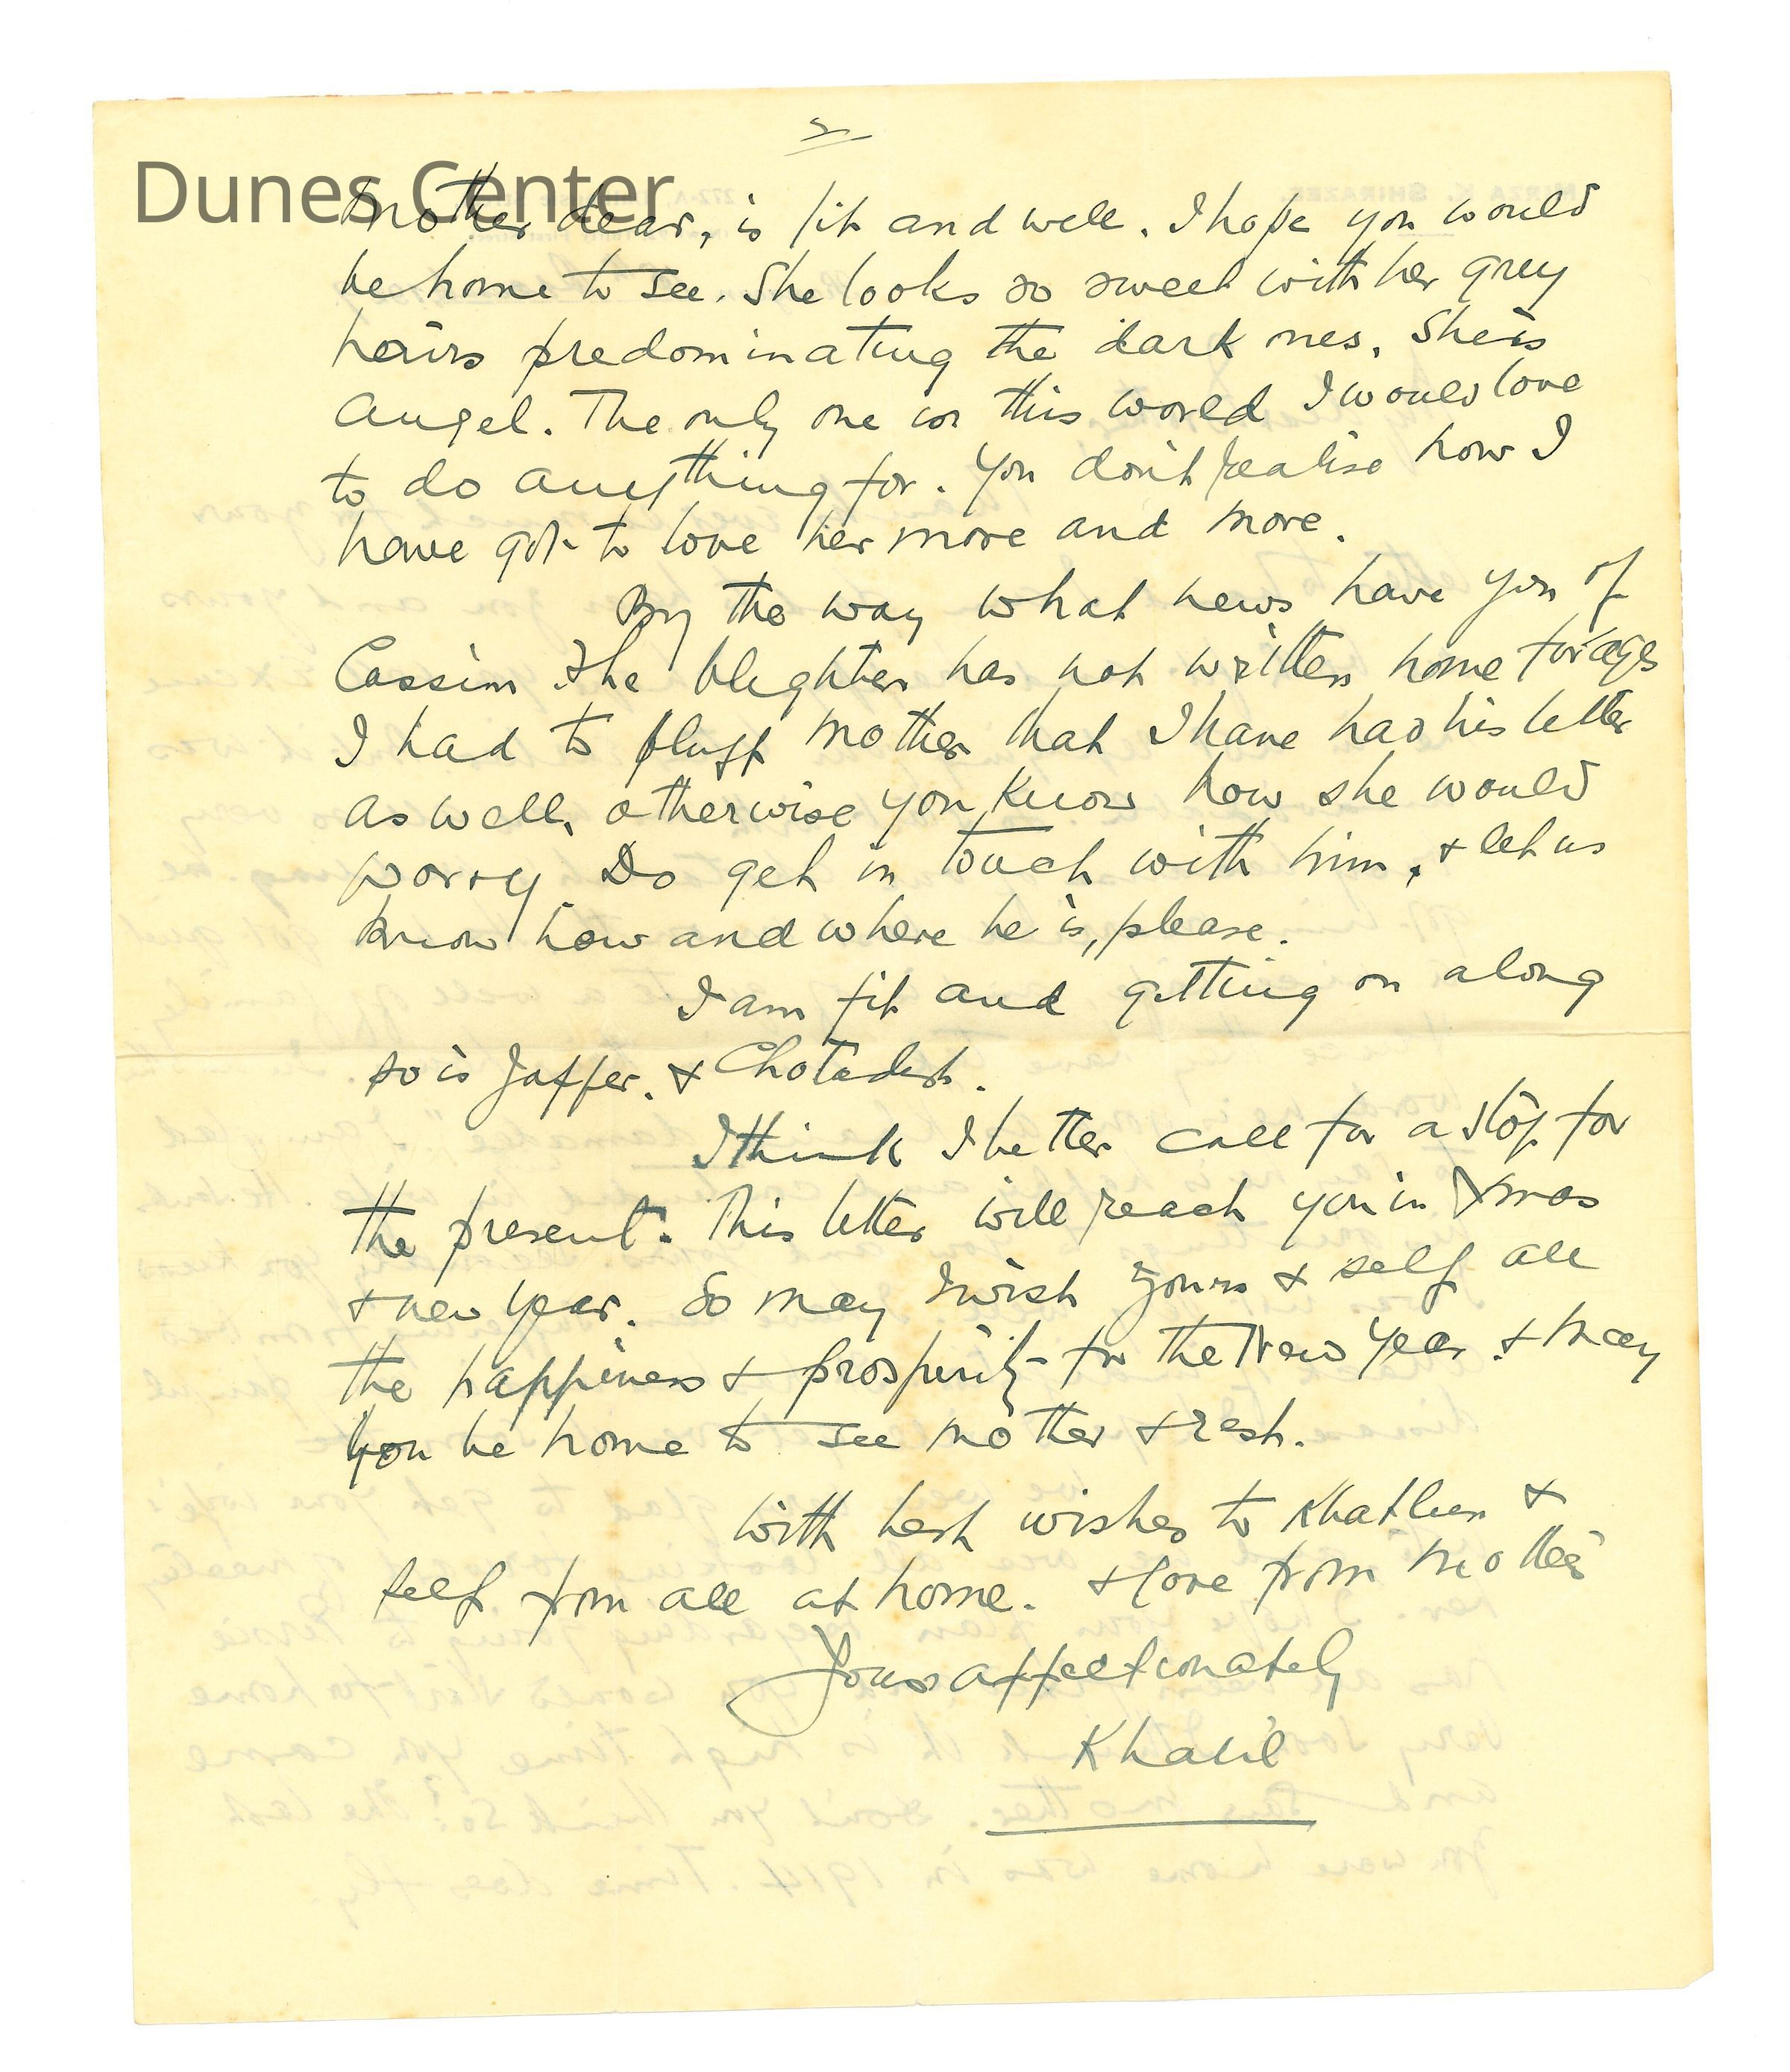 2
Dunes Center
Mother dear, is fit and well. I hope you would
be home to see. She looks so sweet with her grey
hairs predominating the dark ones. She is
Angel. The only one in this world I would love
to do anything for. You don't realise how I
have got to love her more and more.
By the way what news have you of
Cassim the blighter has not written home for ages
I had to bluff mother that I have had his letter
as well, otherwise you know how she would
worry. Do get in touch with him, & let us
know how and where he is, please.
I am fit and getting on along
so is Jaffer. &
I think I better call for a stop for
the present. This letter will reach you in Xmas
& new year. So may I wish yours & self all
the happiness & prosperity for the New Year & may
you be home to see mother & rest.
With best wishes to &
self from all at home. & love from mother
Yours affectionately
Khalil